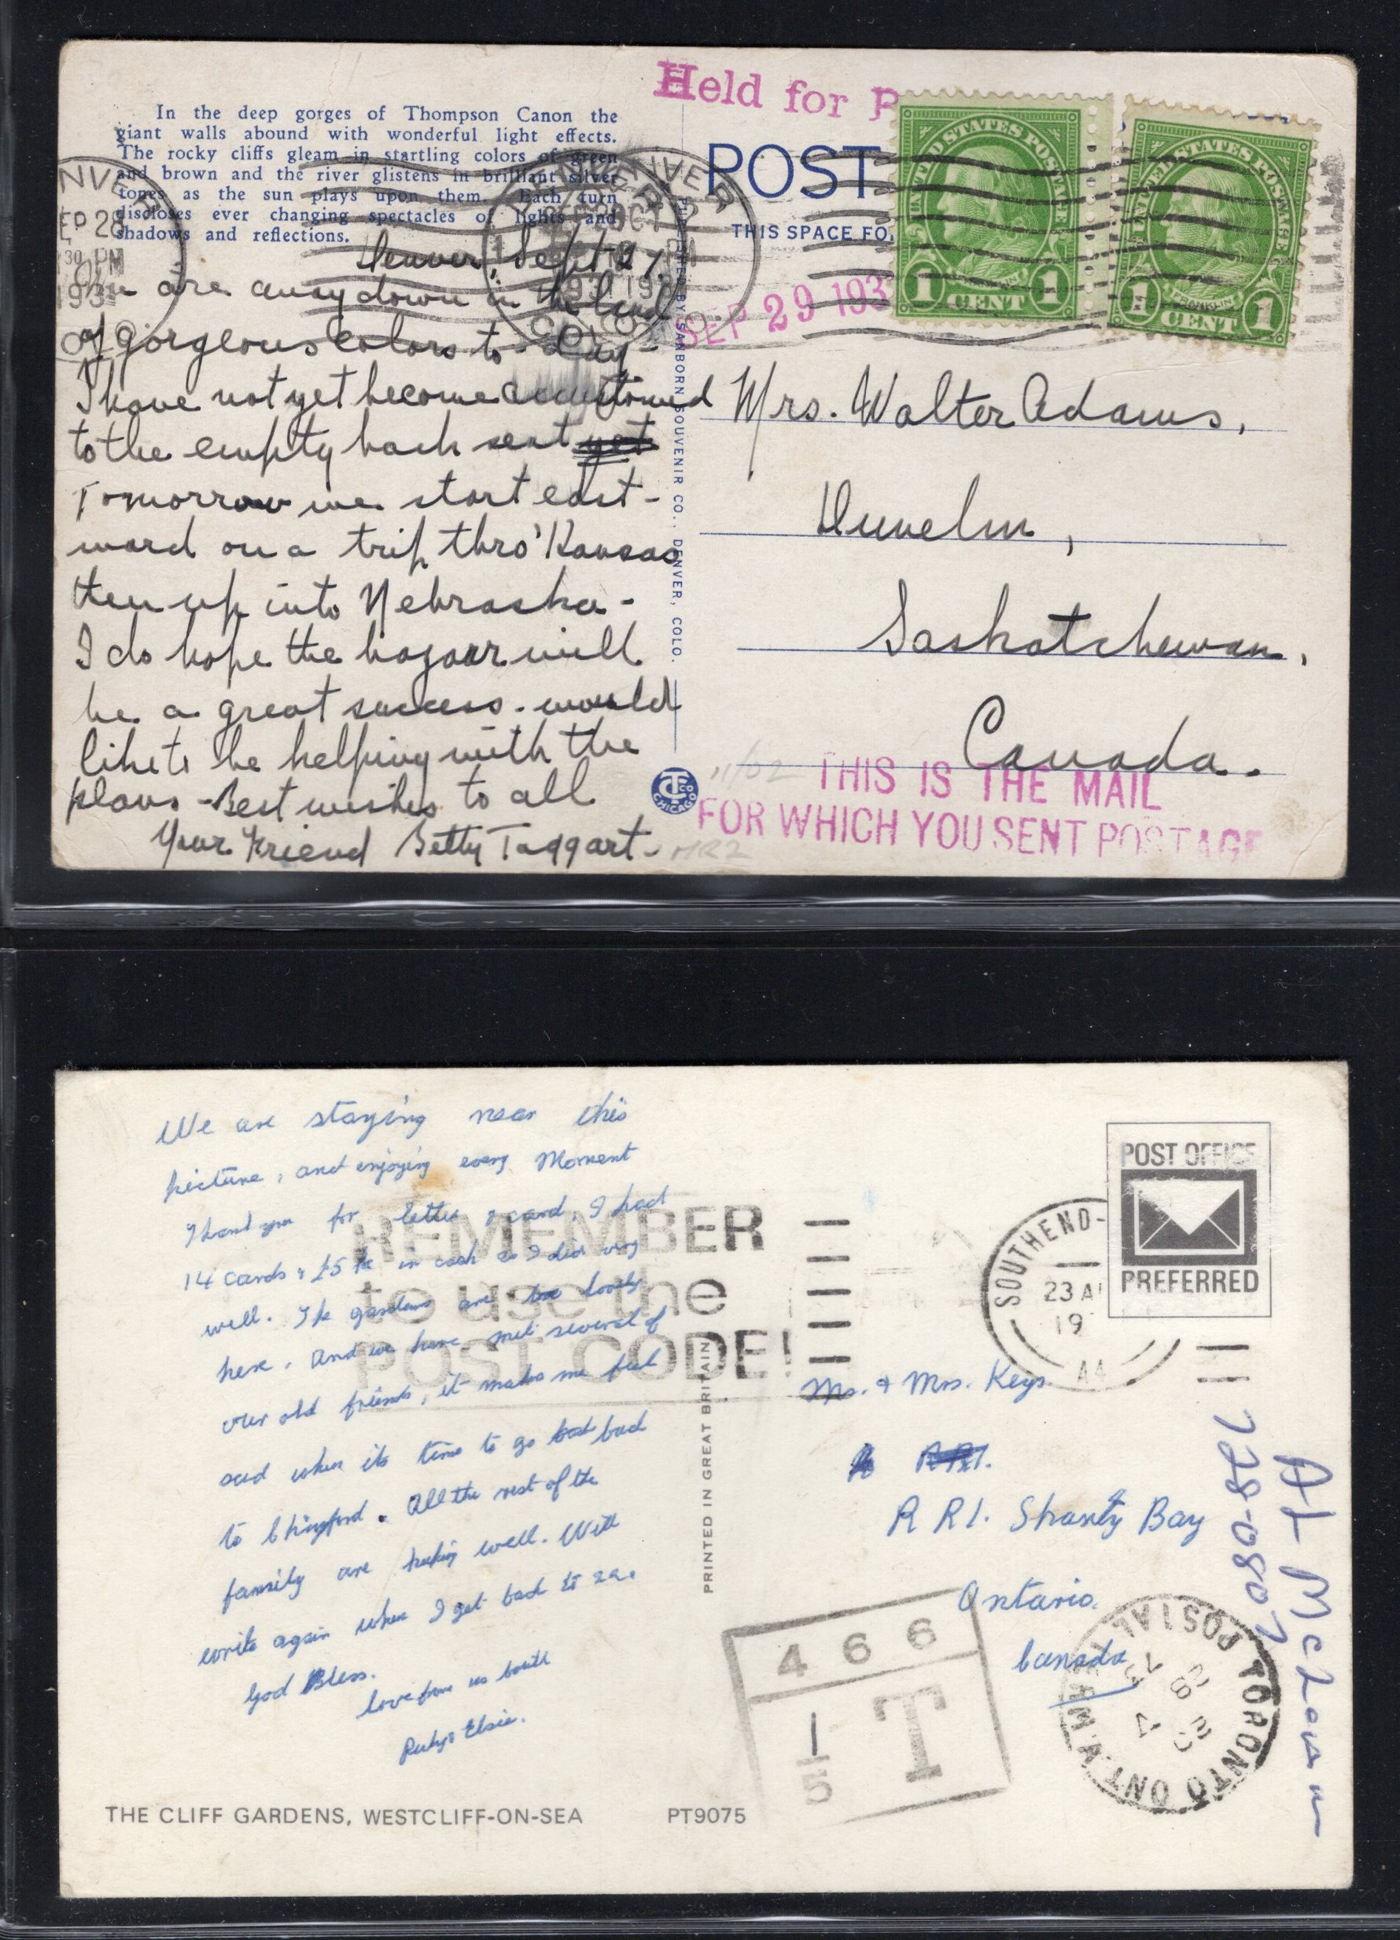 Held for P
In the deep gorges of Thompson Canon the
giant walls abound with wonderful light effects.
The rocky cliffs gleam in startling colors of green
and brown and the river glistens in brilliant silver
tones as the sun plays upon them. Each turn
discloses ever changing spectacles of lights and
shadows and reflections.
POST
THIS SPACE FO
UNITED STATES POSTAGE
FRANKLIN
1 CENT 1
UNITED STATES POSTAGE
FRANKLIN
1 CENT 1
DENVER
COLO.
SEP 29 193
Denver, Sept 27.
are away down in the land
of gorgeous colors to-day-
I have not yet become accustomed
to the empty back seat yet
Tomorrow we start east-
ward on a trip thro' Kansas
then up into Nebraska-
I do hope the bazaar will
be a great success. would
like to be helping with the
plans - Best wishes to all
Your Friend Betty Taggart-
PUBLISHED BY SANBORN SOUVENIR CO., DENVER, COLO.
Mrs. Walter Adams,
Saskatchewan,
Canada.
CTCO CHICAGO
11/02
MR2
THIS IS THE MAIL
FOR WHICH YOU SENT POSTAGE
We are staying near this
picture, and enjoying every Moment
Thank you for letter & card, I had
14 cards & £5 in cash so I did very
well. The gardens are lovely
here. And we have met several of
our old friends, it makes me feel
sad when its time to go back
to Chingford. All the rest of the
family are keeping well. Will
write again when I get back to
God Bless.
love from us both
Elsie.
REMEMBER
to use the
POST CODE!
SOUTHEND-
23 A
19
A4
POST OFFICE
PREFERRED
Mr. & Mrs. Keys
RR1.
RR1. Shanty Bay
Ontario.
Canada
728-0807
Al McLean
PRINTED IN GREAT BRITAIN
466
1/5 T
TORONTO ONT.
POSTAL
THE CLIFF GARDENS, WESTCLIFF-ON-SEA PT9075